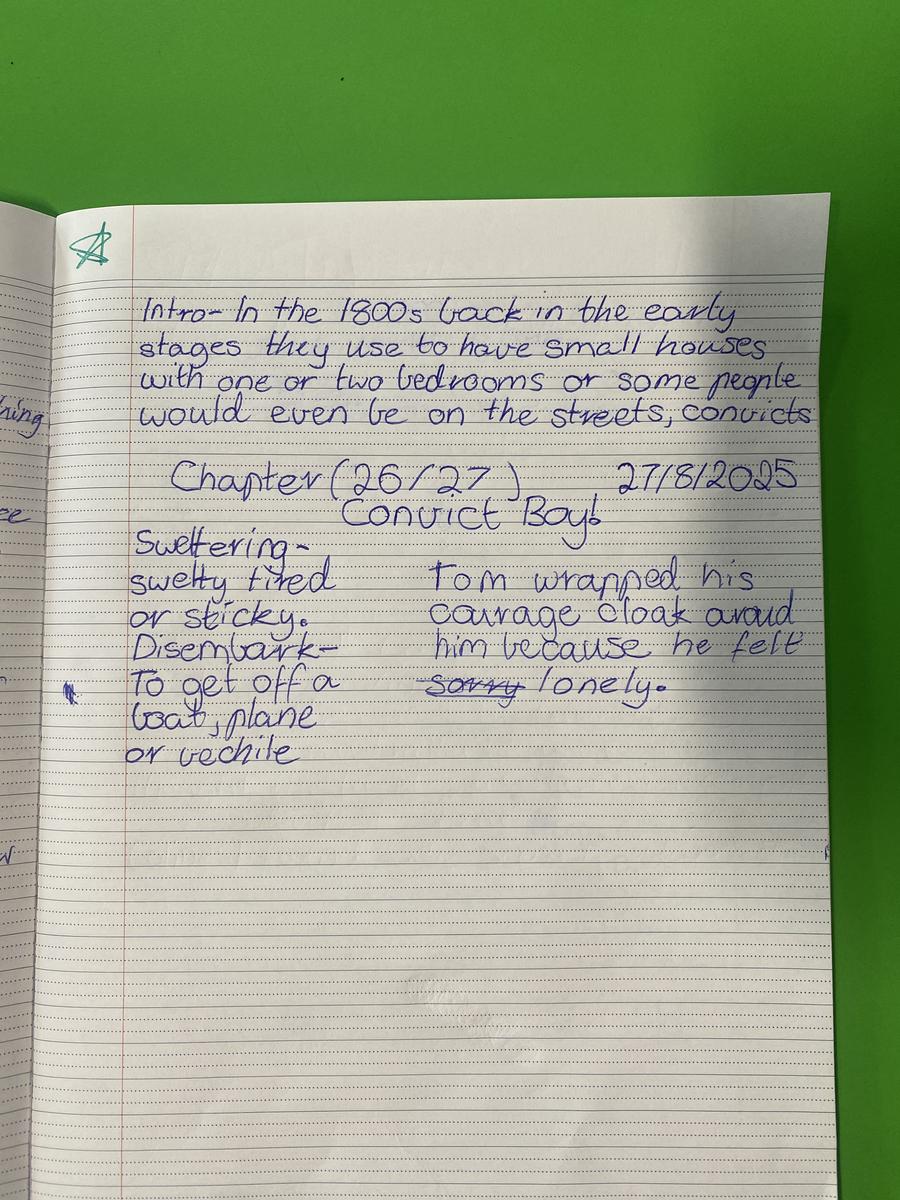 Intro- In the 1800s back in the early
stages they use to have small houses
with one or two bedrooms or some people
would even be on the streets, convicts
Chapter (26/27) 27/8/2025
Convict Boy!
Sweltering-
swelty tired
or sticky.
Disembark-
To get off a
boat, plane
or vechile
Tom wrapped his
courage cloak aroud
him because he felt
sorry lonely.